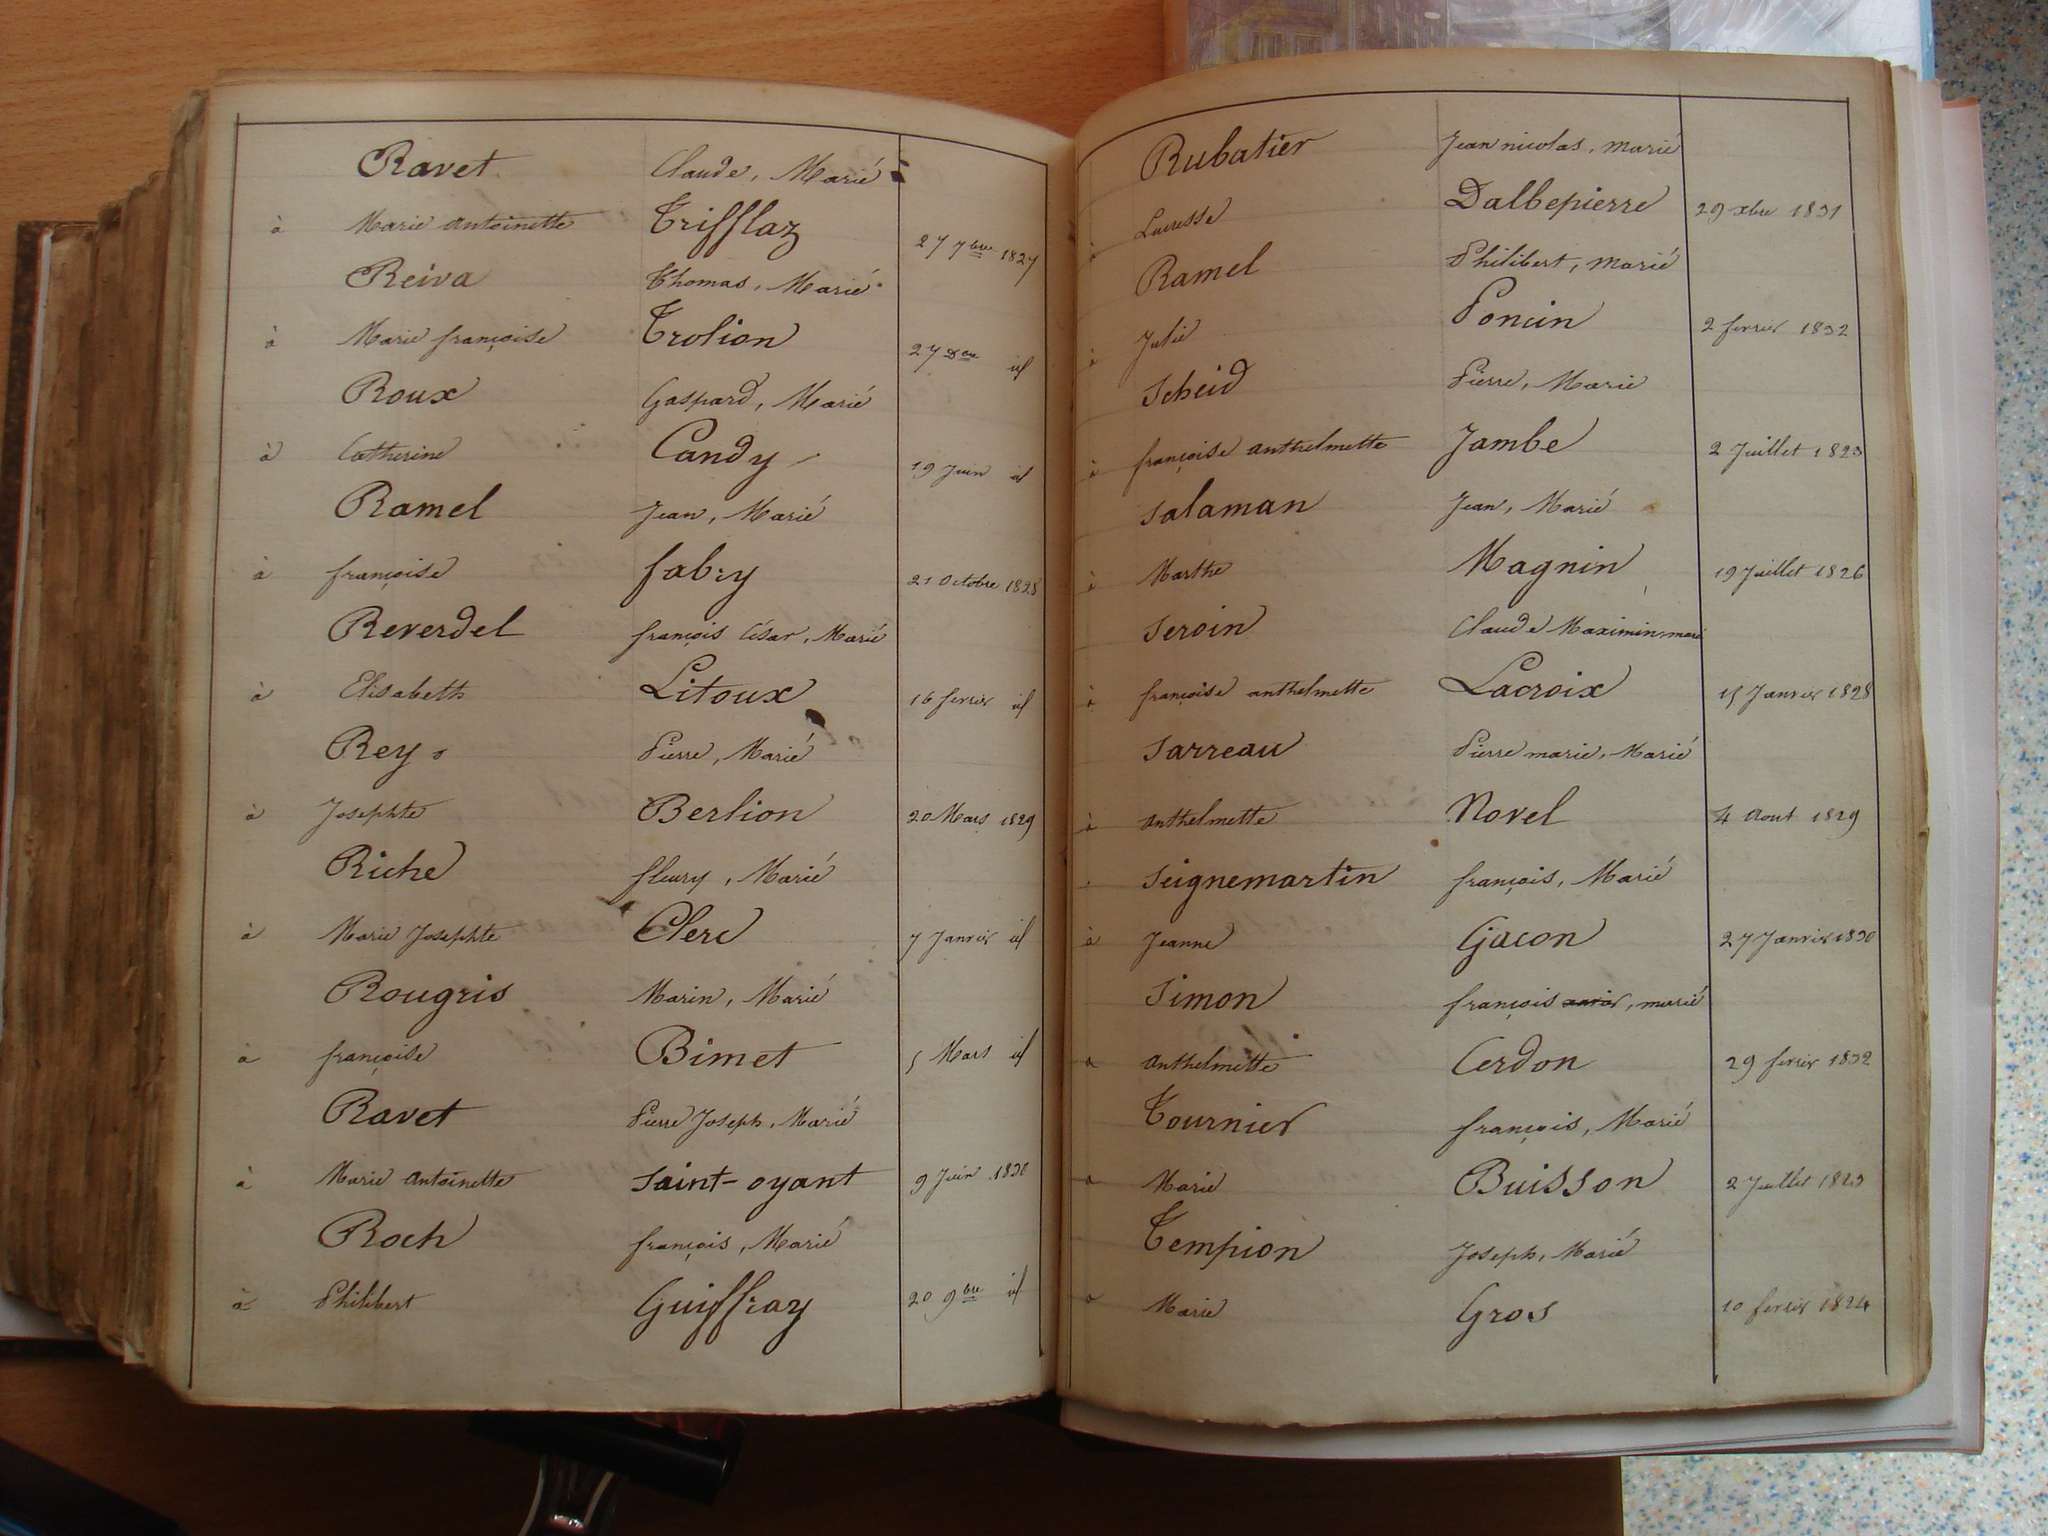 Ravet Claude, Marié
à Marie antoinette Trifflaz 27 7bre 1827
Reiva Thomas, Marié
à Marie françoise Trolion 27 id
Roux Gaspard, Marié
à Catherine Candy 19 Juin id
Ramel Jean, Marié
à françoise fabry 21 Octobre 1828
Reverdel françois César, Marié
à Elisabeth Litoux 16 fevrier id
Rey Pierre, Marié
à Josephte Berlion 20 Mars 1829
Riche fleury, Marié
à Marie Josephte Clerc 7 Janvier id
Rougris Marin, Marié
à françoise Bimet 5 Mars id
Ravet Pierre Joseph, Marié
à Marie antoinette Saint-oyant 9 Juin 1830
Roch françois, Marié
à Philibert Guiffray 20 9bre id
Rubatier Jean nicolas, marié
à Lucresse Dalbepierre 29 xbre 1831
Ramel Philibert, marié
à Julie Poncin 2 fevrier 1832
Scheid Pierre, Marié
à françoise anthelmette Jambe 2 Juillet 1823
Salaman Jean, Marié
à Marthe Magnin 19 Juillet 1826
Seroin Claude Maximin, marié
à françoise anthelmette Lacroix 15 Janvier 1828
Sarreau Pierre marie, Marié
à anthelmette Novel 4 aout 1829
Seignemartin françois, Marié
à Jeanne Gacon 27 Janvier 1830
Simon françois, marié
a anthelmette Cerdon 29 fevrier 1832
Tournier françois, Marié
a Marie Buisson 2 Juillet 1823
Tempion Joseph, Marié
a Marie Gros 10 fevrier 1824